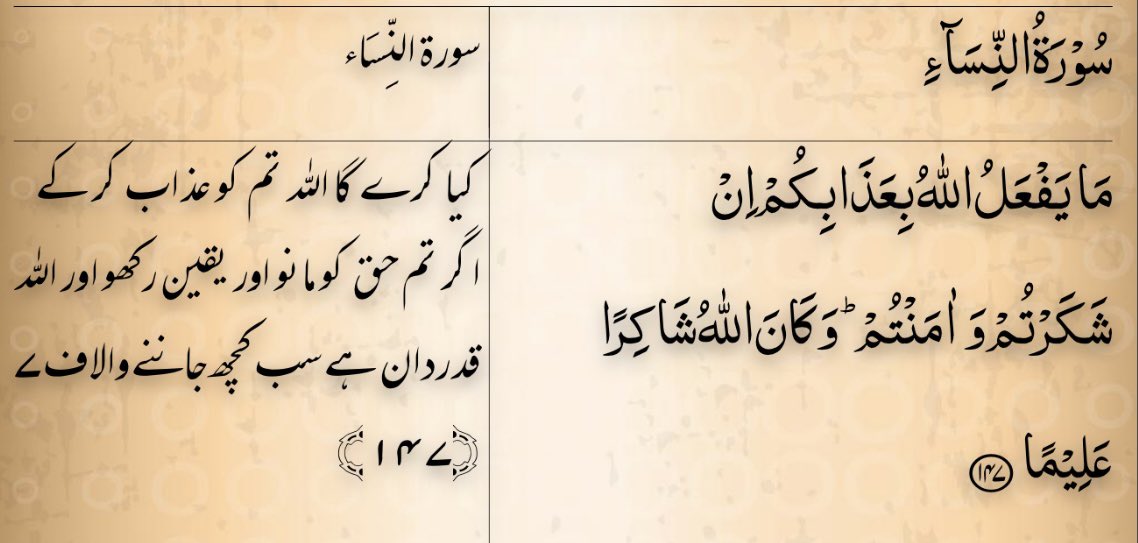 سُوۡرَةُ النِّسَآءِ
سورة النِّسَاء
مَا يَفۡعَلُ اللّٰهُ بِعَذَابِكُمۡ اِنۡ
شَكَرۡتُمۡ وَ اٰمَنۡتُمۡ ؕ وَ كَانَ اللّٰهُ شَاكِرًا
عَلِيۡمًا ﴿۱۴۷﴾
کیا کرے گا اللہ تم کو عذاب کر کے
اگر تم حق کو مانو اور یقین رکھو اور اللہ
قدردان ہے سب کچھ جاننے والا ف۷
﴿۱۴۷﴾